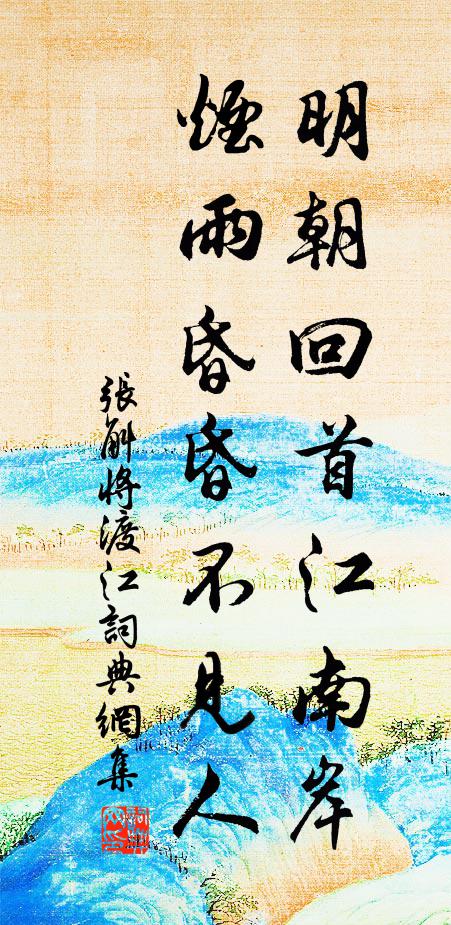 明朝回首江南岸
煙雨昏昏不見人
張斛將渡江詞典網集